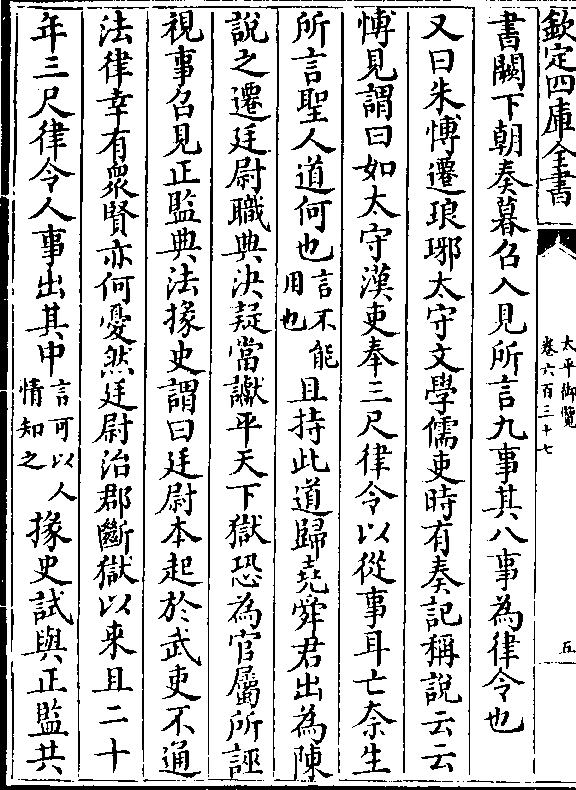 欽定四庫全書
太平御覽
卷六百三十七
五
書闕下朝奏暮召入見所言九事其八事為律令也
又曰朱愽遷琅琊太守文學儒吏時有奏記稱說云云
愽見謂曰如太守漢吏奉三尺律令以從事耳亡奈生
所言聖人道何也言不能用也且持此道歸堯舜君出為陳
說之遷廷尉職典決疑當讞平天下獄恐為官屬所誣
視事召見正監典法掾史謂曰廷尉本起於武吏不通
法律幸有衆賢亦何憂然廷尉治郡斷獄以来且二十
年三尺律令人事出其中言可以人情知之掾史試與正監共